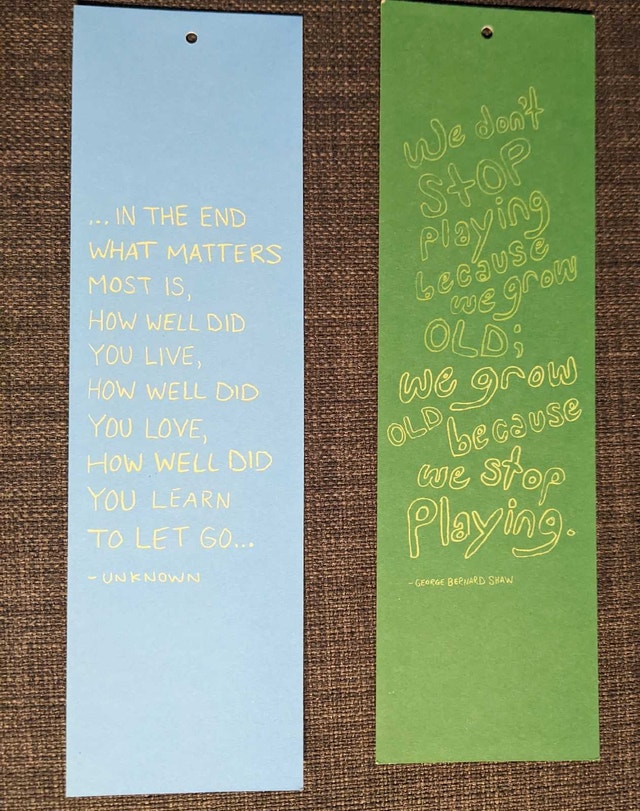 ... IN THE END
WHAT MATTERS
MOST IS,
HOW WELL DID
YOU LIVE,
HOW WELL DID
YOU LOVE,
HOW WELL DID
YOU LEARN
TO LET GO...
- UNKNOWN
We don't
StOP
playing
because
we grow
OLD;
we grow
OLD because
we stop
Playing.
- GEORGE BERNARD SHAW